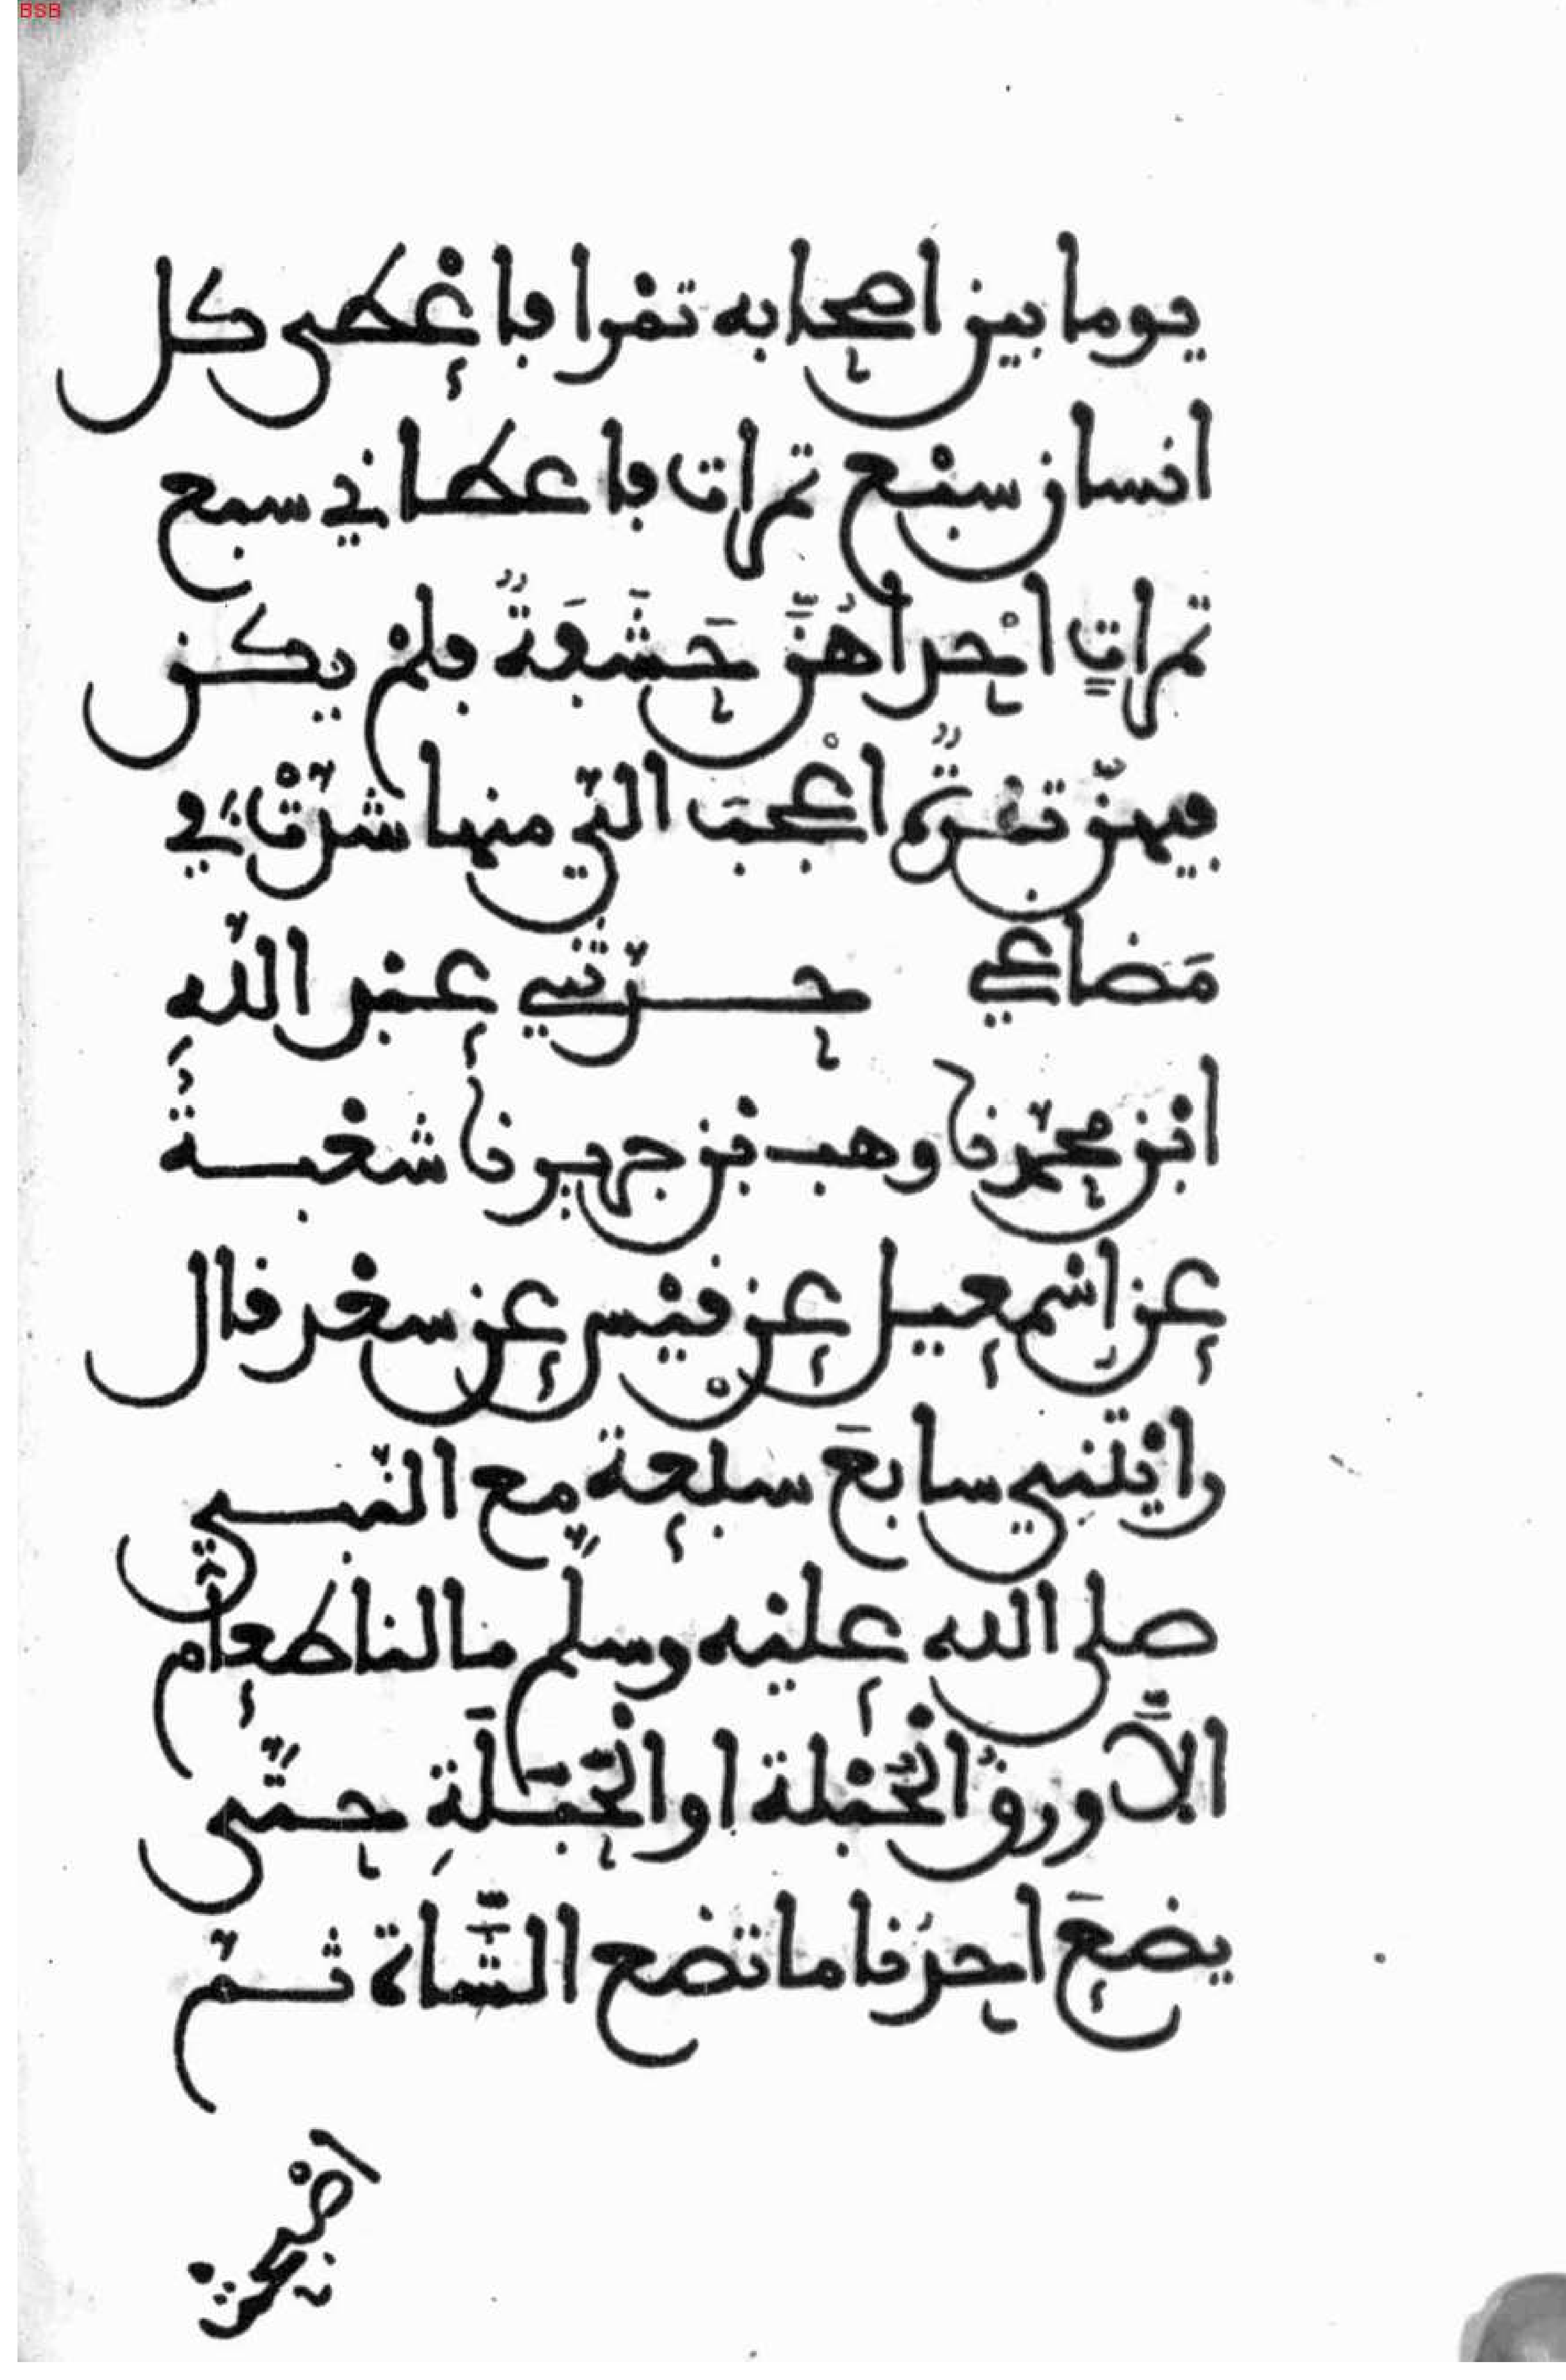 BSB
يوما بين اصحابه تمرا فاعْطى كل
انسان سبْع تمرات فاعطاني سبع
تمراتٍ احْداهُنَّ حَشَفَةٌ فلمْ يكن
فيهنّ تمْرةٌ اعْجبَ التّي منها شدّتْ في
مَضاغي حدّثني عبْد اللّهِ
ابْن محمّد نا وهب بْن جرير نا شعْبةُ
عن اسْمعيل عن قيْس عن سعْد قال
رايْتني سابعَ سبعة مع النّبي
صلى الله عليْه وسلّم ما لنا طعام
الاَّ ورقُ الحُبْلة او الحَبَلَةِ حتّى
يضعَ احدُنا ما تضع الشَّاة ثمّ
اصْبحتْ